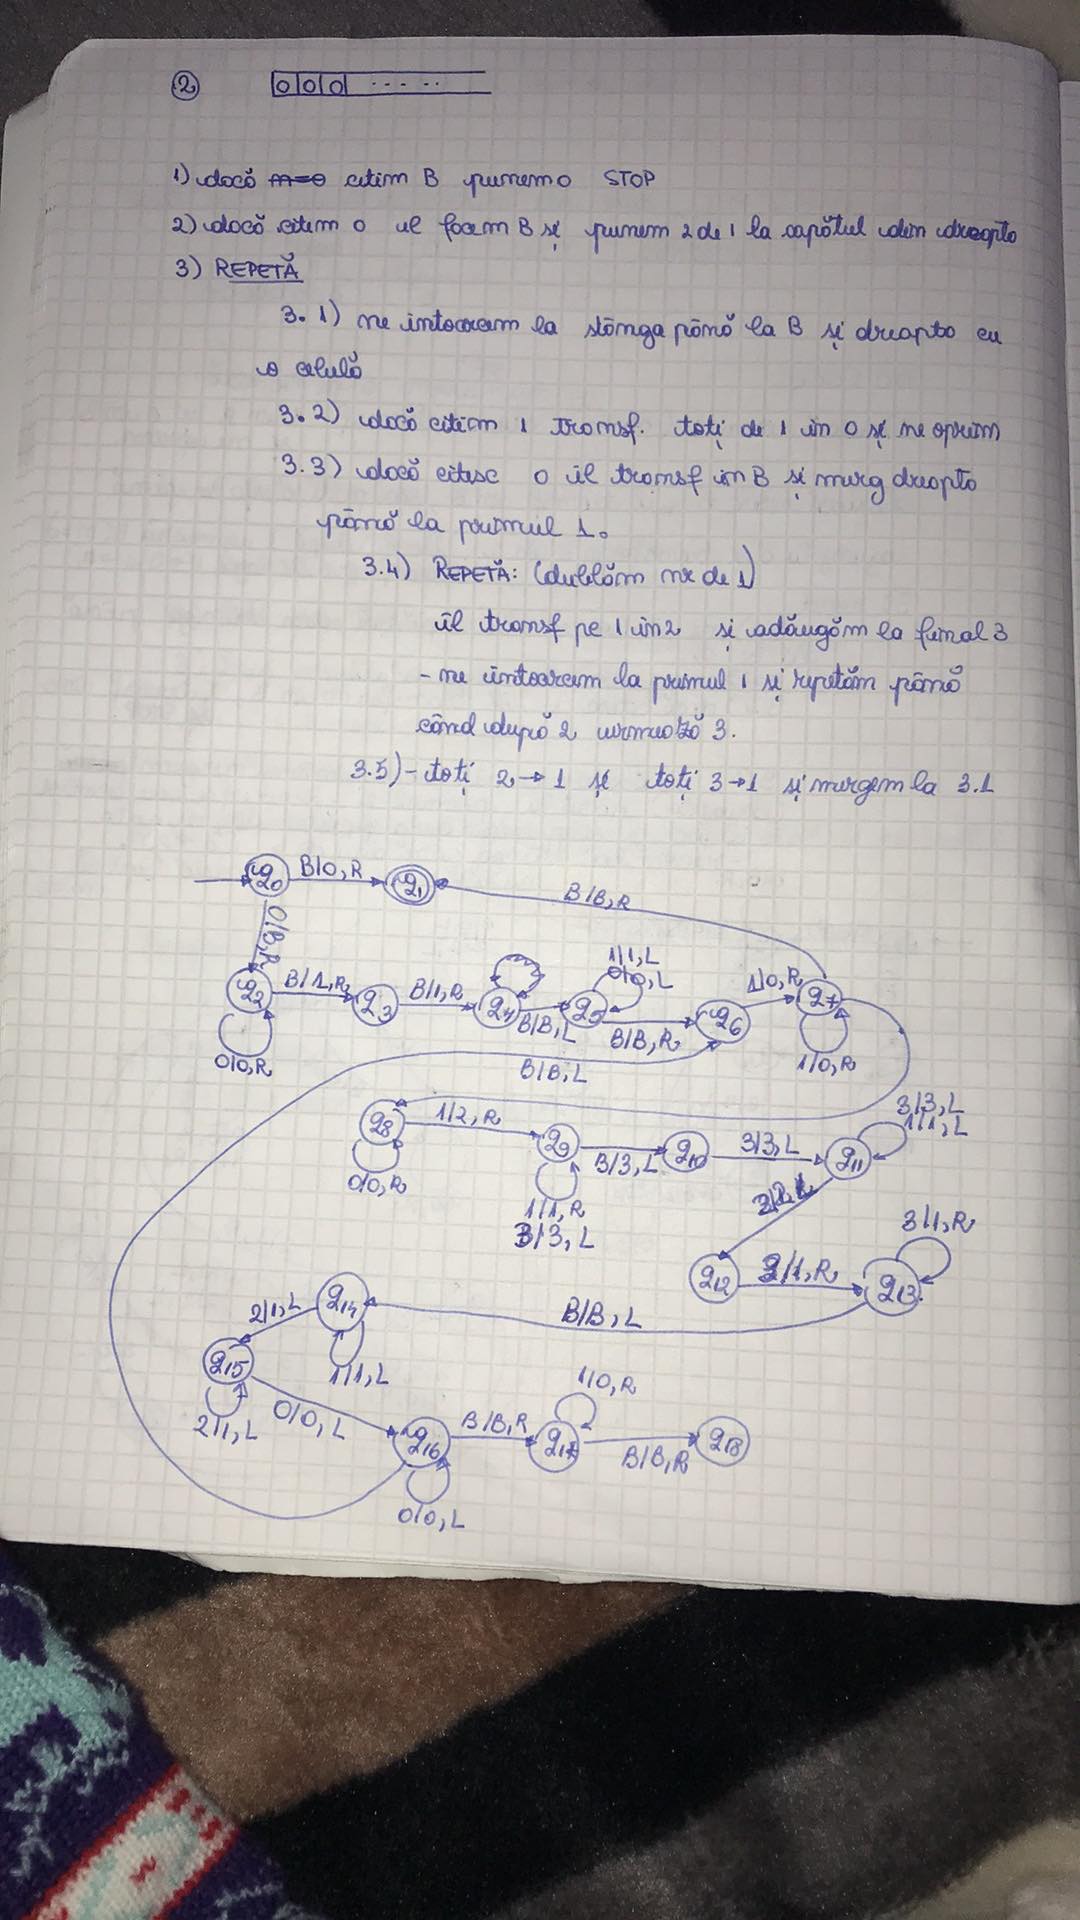 2 0 0 0 ... ..
1) dacă m=0 citim B punem 0 STOP
2) dacă citim 0 îl facem B și punem 2 de 1 la capătul din dreapta
3) REPETĂ
3.1) ne întoarcem la stânga până la B și dreapta cu
o celulă
3.2) dacă citim 1 transf. toți de 1 în 0 și ne oprim
3.3) dacă citesc 0 îl transf în B și merg dreapta
până la primul 1.
3.4) REPETĂ: (dublăm nr de 1)
îl transf pe 1 în 2 și adăugăm la final 3
- ne întoarcem la primul 1 și repetăm până
când după 2 urmează 3.
3.5) - toți 2 → 1 și toți 3 → 1 și mergem la 3.1
q0 B/0, R q1 B/B, R
0/B, R
q2 B/1, R q3 B/1, R q4 B/B, L q5 1/1, L 0/0, L B/B, R q6 1/0, R q7
0/0, R B/B, L 1/0, R
q8 1/2, R q9 B/3, L q10 3/3, L q11 3/3, L 1/1, L
0/0, R 1/1, R
3/3, L
q12 2/1, R q13 3/1, R
q14 B/B, L
2/1, L 1/1, L
q15 2/1, L 0/0, L q16 B/B, R q17 1/0, R B/B, R q18
0/0, L